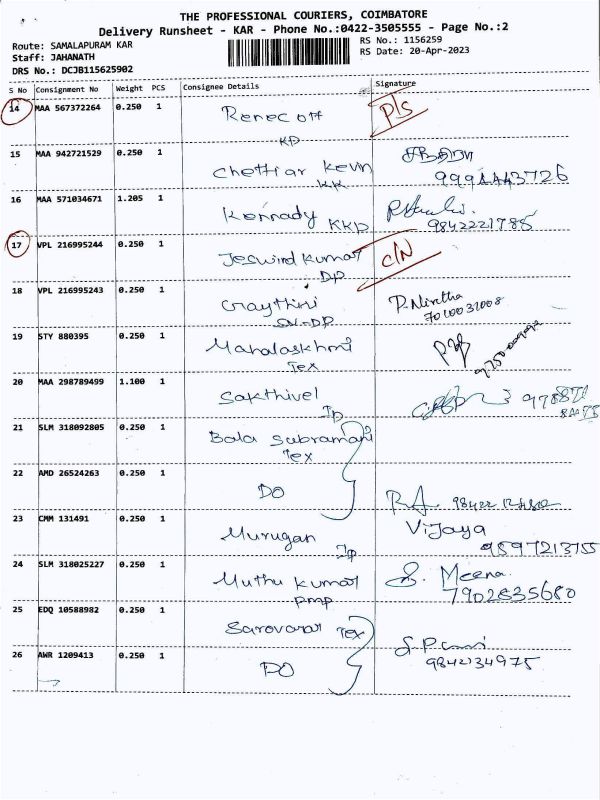 THE PROFESSIONAL COURIERS, COIMBATORE
Delivery Runsheet - KAR - Phone No.:0422-3505555 - Page No.:2
Route: SAMALAPURAM KAR RS No.: 1156259
Staff: JAHANATH RS Date: 20-Apr-2023
DRS No.: DCJB115625902
S No Consignment No Weight PCS Consignee Details Signature
14 MAA 567372264 0.250 1 Renec off P/S
KP
15 MAA 942721529 0.250 1 Chettiar Kevin
KK
16 MAA 571034671 1.205 1 Kennady KKP
9842221785
17 VPL 216995244 0.250 1 Jeswind Kumar C/N
DP
18 VPL 216995243 0.250 1 Graythini P. Nivetha
19 STY 880395 0.250 1 Mahalaskhmi
Tex
20 MAA 298789499 1.100 1 Sakthivel
Jp
21 SLM 318092805 0.250 1 Bala Subramani
Tex
22 AMD 26524263 0.250 1 DO
23 CMM 131491 0.250 1 Murugan Vijaya
Jp 9597213755
24 SLM 318025227 0.250 1 Muthu Kumar S. Meena.
pmp 7902835680
25 EDQ 10588982 0.250 1 Sarovarar Tex
26 AWR 1209413 0.250 1 DO 9842134975